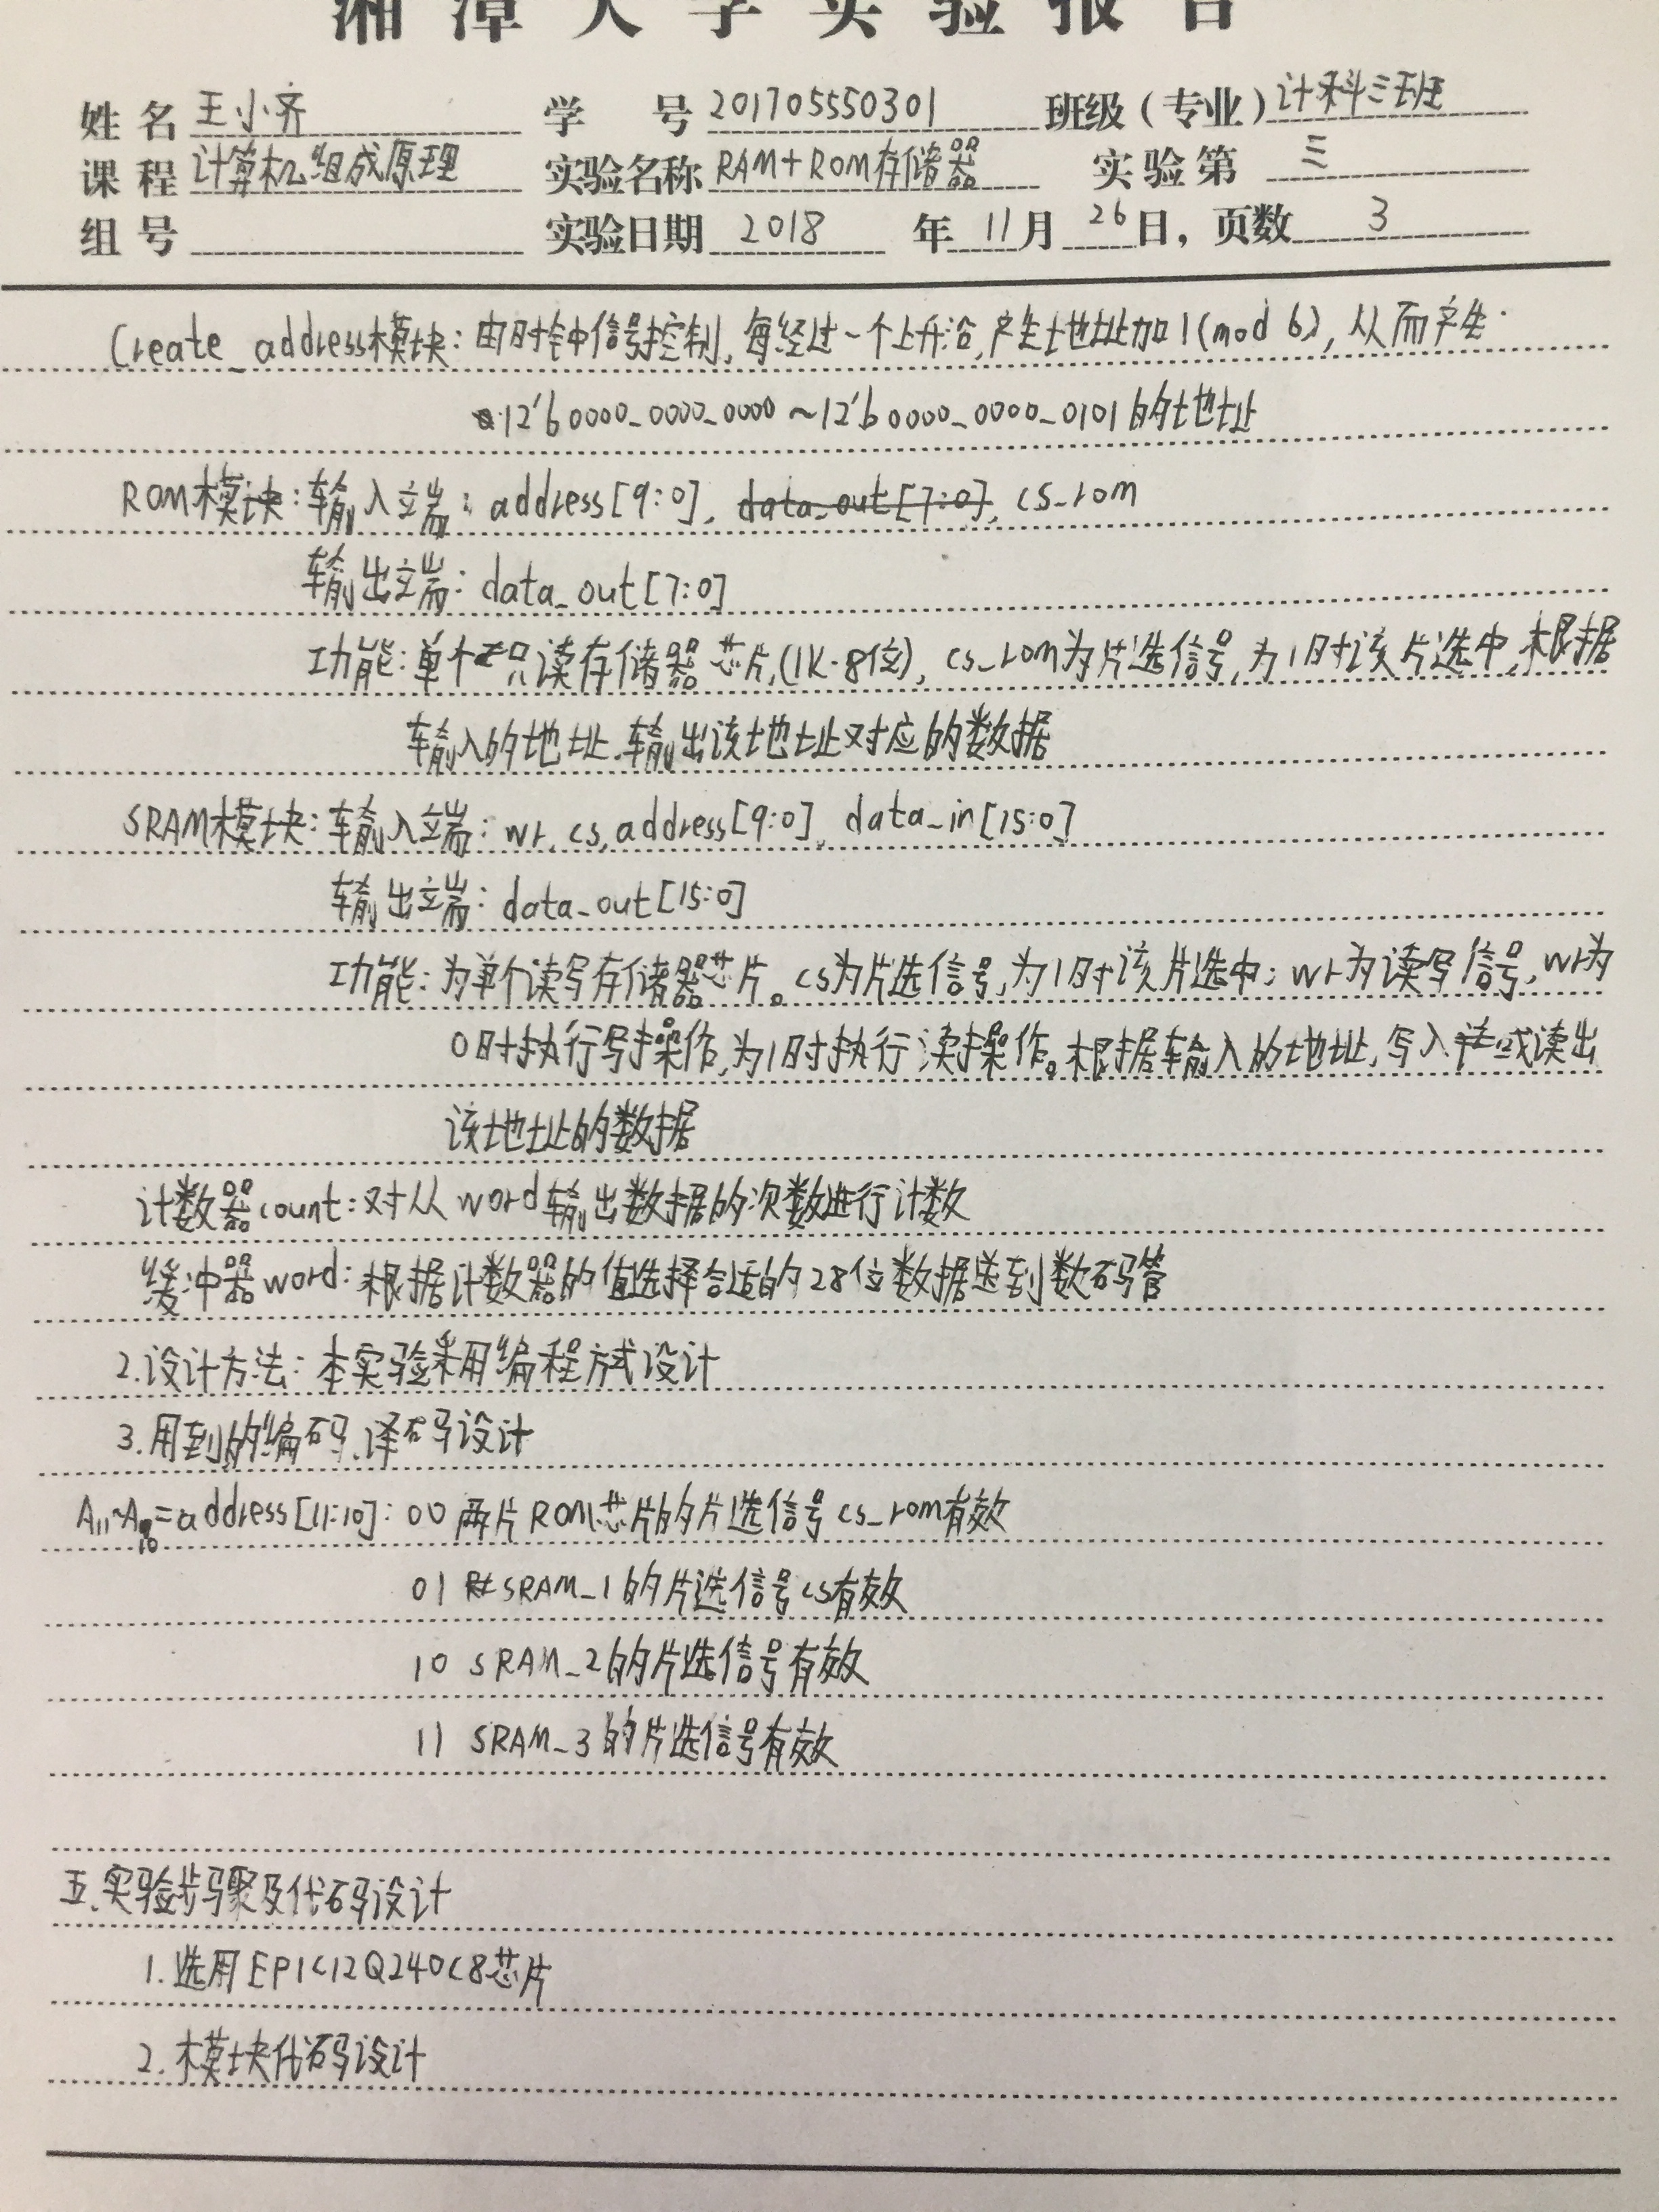 湘潭大学实验报告
姓名 王小齐 学号 201705550301 班级（专业） 计科三班
课程 计算机组成原理 实验名称 RAM+ROM存储器 实验第 三
组号 实验日期 2018 年 11 月 26 日，页数 3
Create_address模块：由时钟信号控制，每经过一个上升沿，产生地址加1(mod 6)，从而产生
12'b0000_0000_0000～12'b0000_0000_0101的地址
ROM模块：输入端：address[9:0]，data_out[7:0]，cs_rom
输出端：data_out[7:0]
功能：单个只读存储器芯片，(1K·8位)，cs_rom为片选信号，为1时该片选中，根据
输入的地址，输出该地址对应的数据
SRAM模块：输入端：wr，cs，address[9:0]，data_in[15:0]
输出端：data_out[15:0]
功能：为单个读写存储器芯片。cs为片选信号，为1时该片选中；wr为读写信号，wr为
0时执行写操作，为1时执行读操作。根据输入的地址，写入或读出
该地址的数据
计数器count：对从word输出数据的次数进行计数
缓冲器word：根据计数器的值选择合适的28位数据送到数码管
2.设计方法：本实验采用编程方式设计
3.用到的编码、译码设计
A11~A10=address[11:10]：00 两片ROM芯片的片选信号cs_rom有效
01 SRAM_1的片选信号cs有效
10 SRAM_2的片选信号有效
11 SRAM_3的片选信号有效
五.实验步骤及代码设计
1.选用EP1C12Q240C8芯片
2.模块代码设计